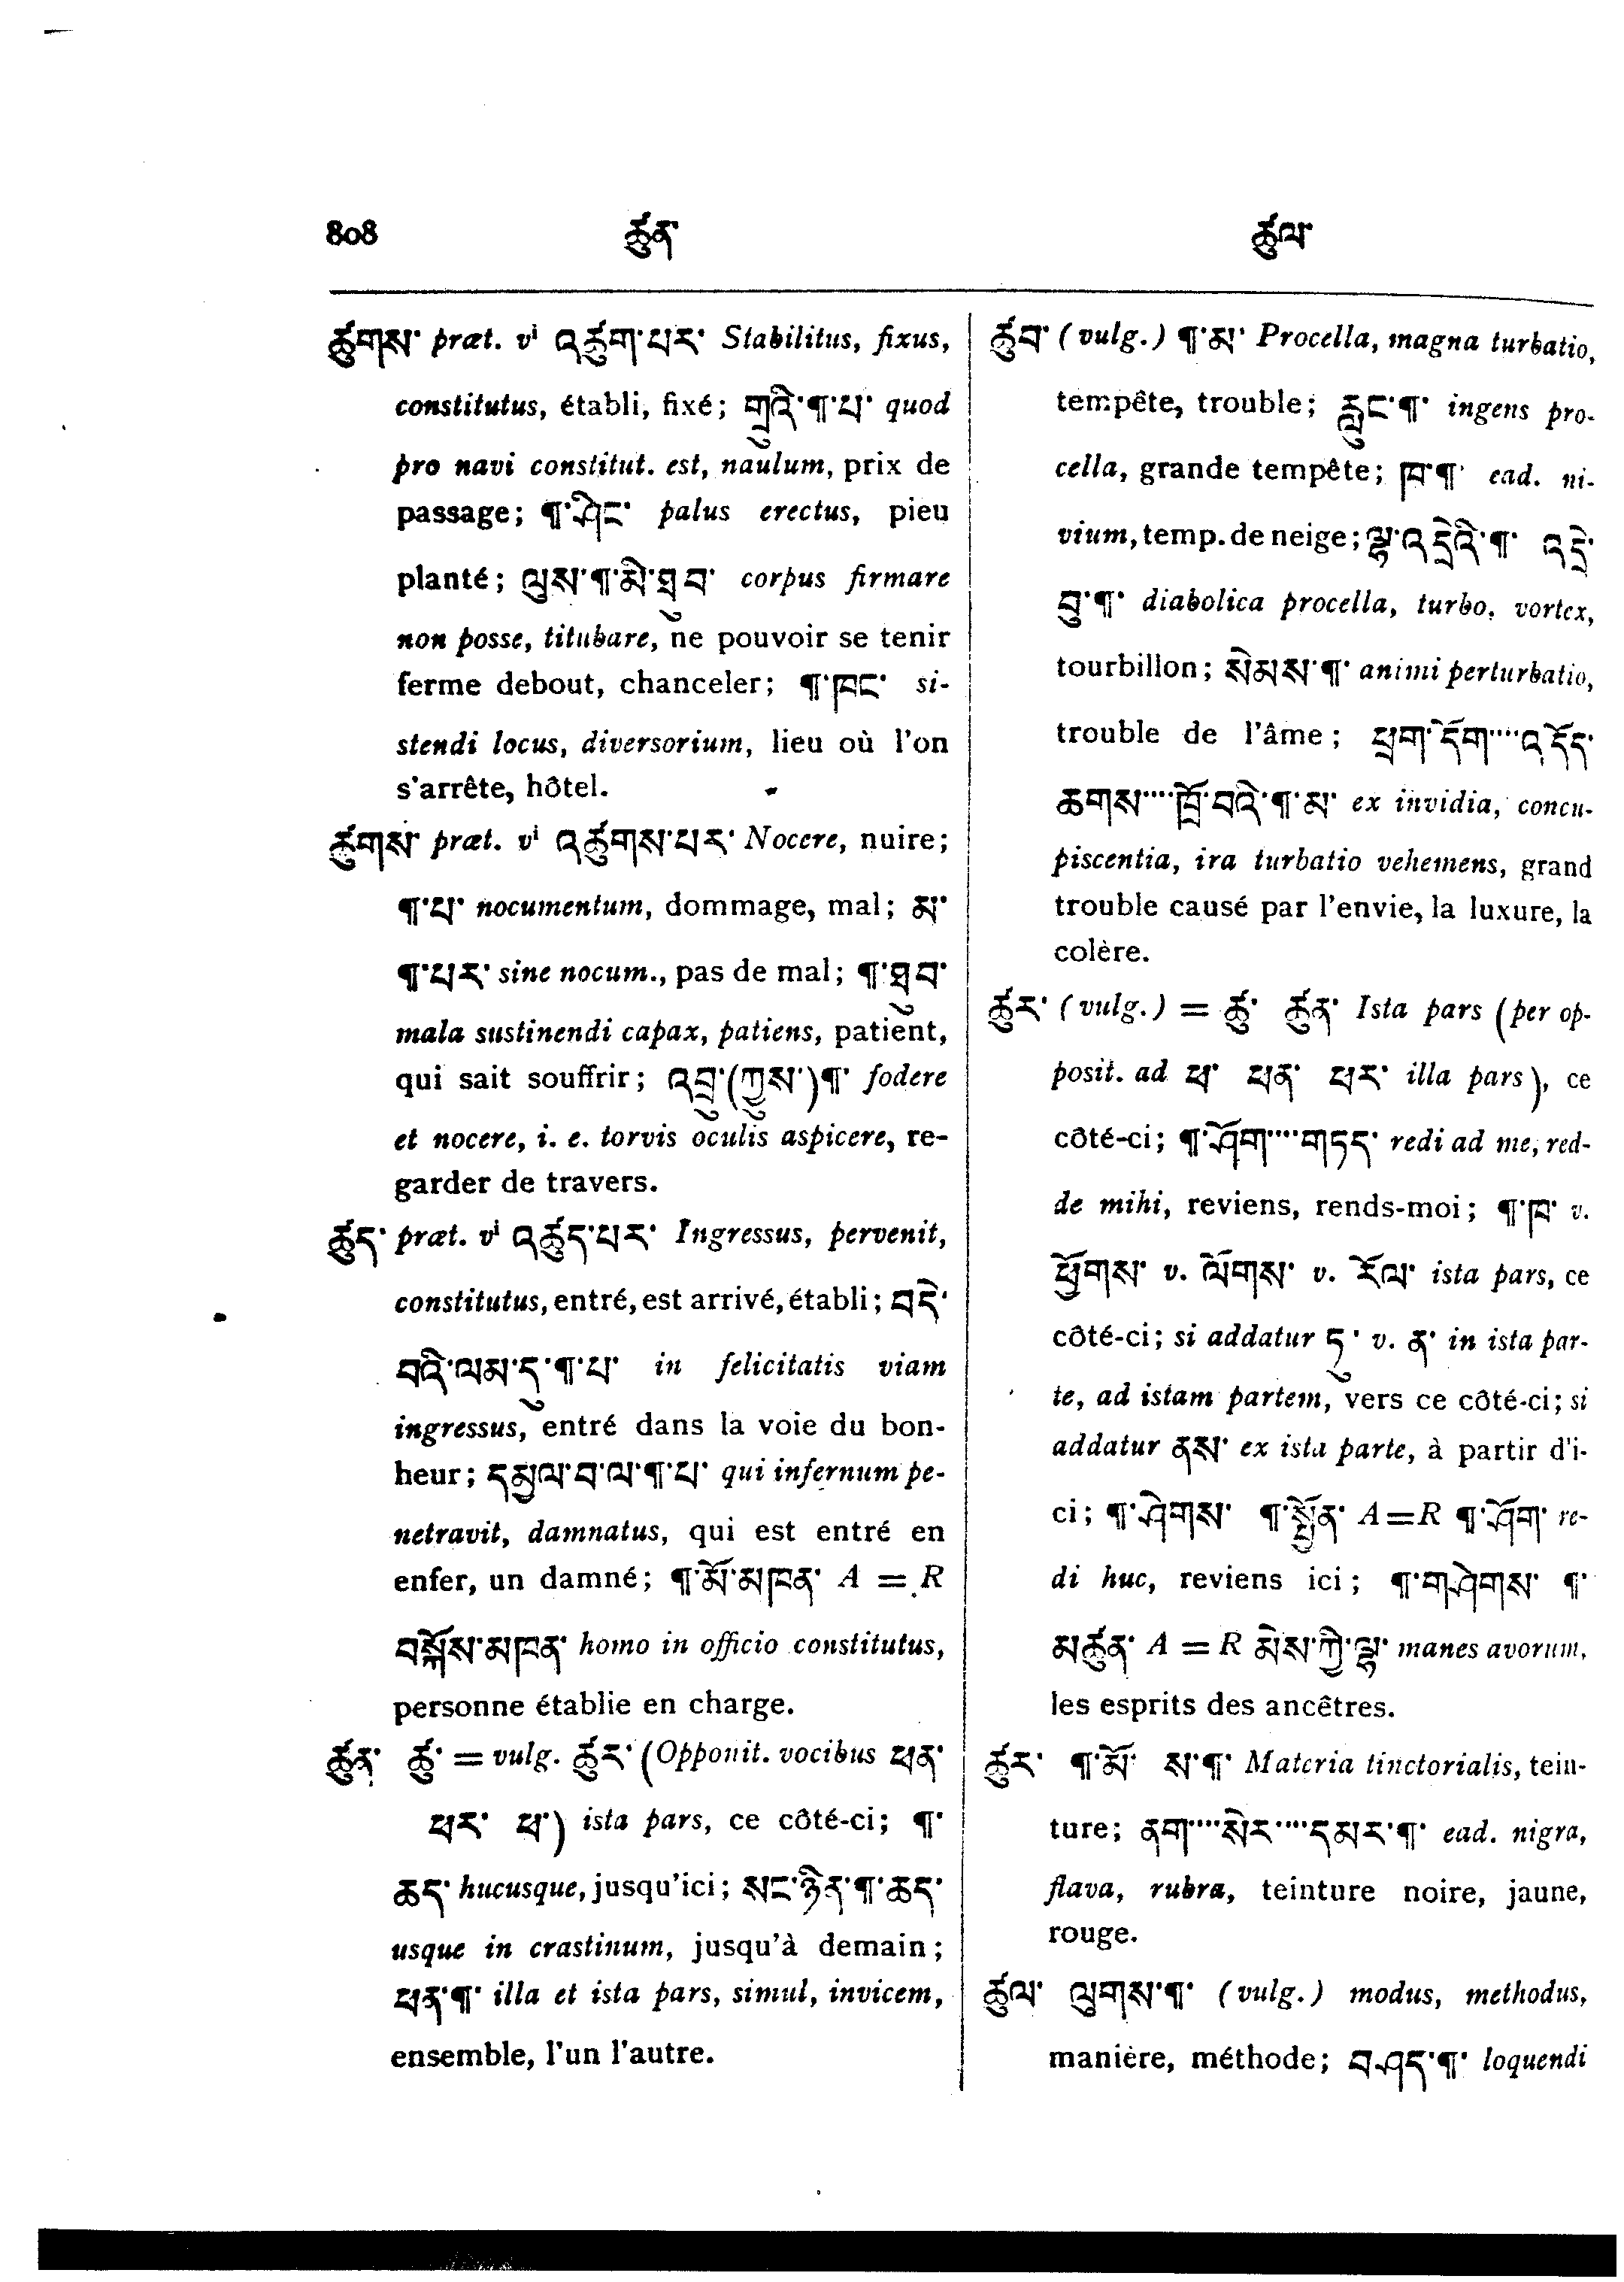 808 ཚུན་ ཚུལ་
ཚུགས་ præt. vⁱ འཚུག་པར་ Stabilitus, fixus,
constitutus, établi, fixé; གྲུའི་¶་པ་ quod
pro navi constitut. est, naulum, prix de
passage; ¶་ཤིང་ palus erectus, pieu
planté; ལུས་¶་མི་ཐུབ་ corpus firmare
non posse, titubare, ne pouvoir se tenir
ferme debout, chanceler; ¶་ཁང་ si-
stendi locus, diversorium, lieu où l'on
s'arrête, hôtel.
ཚུགས་ præt. vⁱ འཚུགས་པར་ Nocere, nuire;
¶་པ་ nocumentum, dommage, mal; མ་
¶་པར་ sine nocum., pas de mal; ¶་ཐུབ་
mala sustinendi capax, patiens, patient,
qui sait souffrir; འབྲུ་(ཀྱུས་)¶་ fodere
et nocere, i. e. torvis oculis aspicere, re-
garder de travers.
ཚུད་ præt. vⁱ འཚུད་པར་ Ingressus, pervenit,
constitutus, entré, est arrivé, établi; བདེ་
བའི་ལམ་དུ་¶་པ་ in felicitatis viam
ingressus, entré dans la voie du bon-
heur; དམྱལ་བ་ལ་¶་པ་ qui infernum pe-
netravit, damnatus, qui est entré en
enfer, un damné; ¶་མོ་མཁན་ A = R
བསྐོས་མཁན་ homo in officio constitutus,
personne établie en charge.
ཚུན་ ཚུ་ = vulg. ཚུར་ (Opponit. vocibus ཕན་
ཕར་ ཕ་) ista pars, ce côté-ci; ¶་
ཆད་ hucusque, jusqu'ici; སང་ཉིན་¶་ཆད་
usque in crastinum, jusqu'à demain;
ཕན་¶་ illa et ista pars, simul, invicem,
ensemble, l'un l'autre.
ཚུབ་ (vulg.) ¶་མ་ Procella, magna turbatio,
tempête, trouble; རླུང་¶་ ingens pro-
cella, grande tempête; ཁ་¶་ ead. ni-
vium, temp. de neige; ལྷ་འདྲེའི་¶་ འདྲེ་
བུ་¶་ diabolica procella, turbo, vortex,
tourbillon; སེམས་¶་ animi perturbatio,
trouble de l'âme; ཕྲག་དོག་···འདོད་
ཆགས་···ཁྲོ་བའི་¶་མ་ ex invidia, concu-
piscentia, ira turbatio vehemens, grand
trouble causé par l'envie, la luxure, la
colère.
ཚུར་ (vulg.) = ཚུ་ ཚུན་ Ista pars (per op-
posit. ad ཕ་ ཕན་ ཕར་ illa pars), ce
côté-ci; ¶་ཤོག་···གཏད་ redi ad me, red-
de mihi, reviens, rends-moi; ¶་ཁ་ v.
ཕྱོགས་ v. ལོགས་ v. རོལ་ ista pars, ce
côté-ci; si addatur དུ་ v. ན་ in ista par-
te, ad istam partem, vers ce côté-ci; si
addatur ནས་ ex ista parte, à partir d'i-
ci; ¶་ཤེགས་ ¶་སྤྱོན་ A = R ¶་ཤོག་ re-
di huc, reviens ici; ¶་གཤེགས་ ¶་
མཚུན་ A = R མེས་ཀྱི་ལྷ་ manes avorum,
les esprits des ancêtres.
ཚུར་ ¶་མོ་ ས་¶་ Materia tinctorialis, tein-
ture; ནག་···སེར་···དམར་¶་ ead. nigra,
flava, rubra, teinture noire, jaune,
rouge.
ཚུལ་ ལུགས་¶་ (vulg.) modus, methodus,
manière, méthode; བཤད་¶་ loquendi